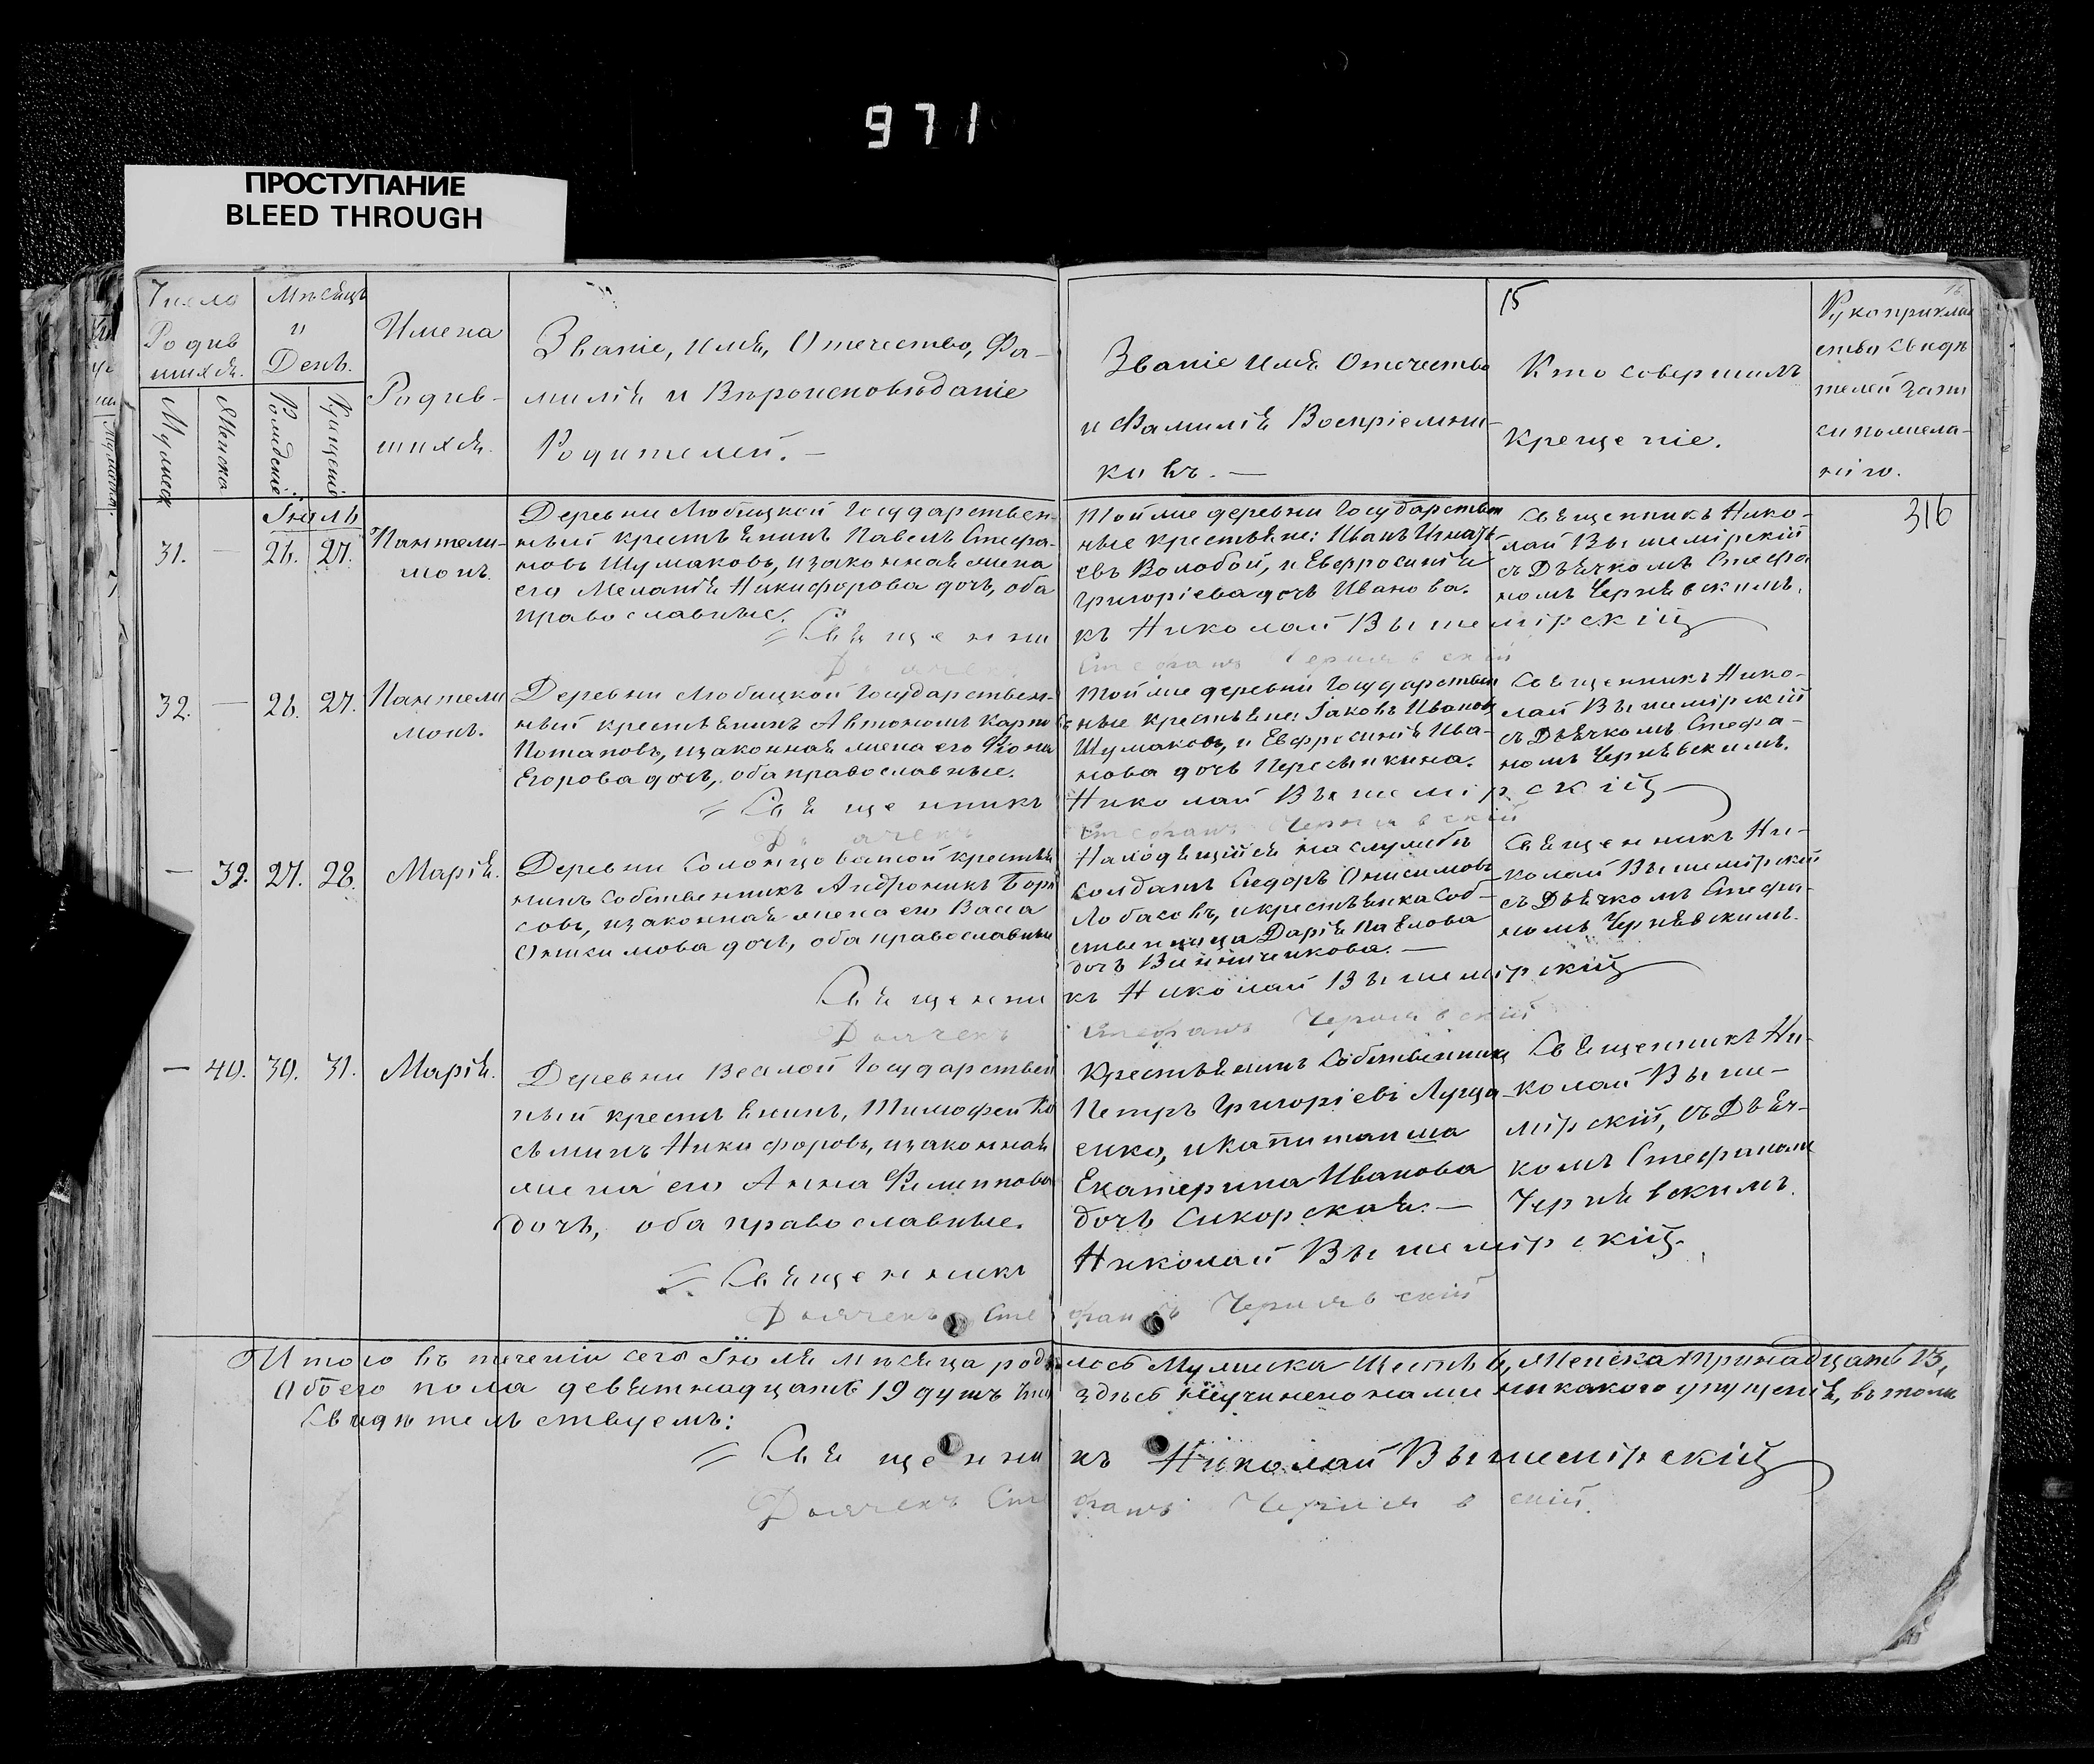 971
ПРОСТУПАНИЕ
BLEED THROUGH
Число
Родив
шихся.
Мужеска
Женска
Мѣсяцъ
и
День.
Рожденіе
Крещеніе
Имена
Родив-
шихся.
Званіе, имя, Отечество, Фа-
милія и Вѣроисповѣданіе
Родителей. —
Званіе имя Отечество
и Фамилія Воспріемни-
ковъ. —
15
Кто совершилъ
крещеніе.
Рукоприклад
ство свидѣ
телей запи
си по жела-
нію.
316
Іюль
31. — 26. 27.
Пантели-
монъ.
Деревни Любицкой Государствен-
ный крестьянинъ Павелъ Стефа-
новъ Шумаковъ, изаконная жена
его Меланія Никифорова дочь, оба
православные.
Той же деревни Государствен
ные крестьяне: Иванъ Игнать
евъ Волобой, и Евфросинія
Григоріева дочь Иванова.
Священникъ Нико-
лай Вышемірскій
съ Дьячкомъ Стефа
номъ Чернявскимъ.
Священникъ Николай Вышемірскій
Дьячекъ Стефанъ Чернявскій
32. — 26. 27.
Пантели
монъ.
Деревни Любицкой Государствен-
ный крестьянинъ Автономъ Карпо
Потаповъ, изаконная жена его
Егорова дочь, оба православные.
Той же деревни Государствен
ные крестьяне: Іаковъ Ивановъ
Шумаковъ, и Евфросинія Ива-
нова дочь Пересыпкина.
Священникъ Нико-
лай Вышемірскій
съ Дьячкомъ Стефа-
номъ Чернявскимъ.
Священникъ Николай Вышемірскій
Дьячекъ Стефанъ Чернявскій
— 39. 27. 28.
Марія.
Деревни Солонцоватой крестья
нинъ собственникъ Андроникъ Бори
совъ, изаконная жена его Васса
Онисимова дочь, оба православные
Находящійся на службѣ
солдатъ Сидоръ Онисимовъ
Лобасовъ, и крестьянка соб-
ственница Дарія Павлова
дочь Винниченкова. —
Священникъ Ни-
колай Вышемірскій
съ Дьячкомъ Стефа-
номъ Чернявскимъ.
Священникъ Николай Вышемірскій
Дьячекъ Стефанъ Чернявскій
— 40. 30. 31.
Марія.
Деревни Веселой Государствен
ный крестьянинъ, Тимофей Ко
сьминъ Никифоровъ, изаконная
жена его Анна Филиппова
дочь, оба православные.
Крестьянинъ Собственникъ
Петръ Григоріевъ Луца-
енко, и капитанша
Екатерина Иванова
дочь Сикорская. —
Священникъ Ни-
колай Выше-
мірскій, съ Дьяч-
комъ Стефаномъ
Чернявскимъ.
Священникъ Николай Вышемірскій.
Дьячекъ Стефанъ Чернявскій
Итого въ теченіи сего Іюля мѣсяца родилось Мужеска Шесть 6, Женска тринадцать 13,
Обоего пола девятнадцать 19 душъ что здѣсь неучинено нами никакого упущенія, въ томъ
Свидѣтельствуемъ:
Священникъ Николай Вышемірскій
Дьячекъ Стефанъ Чернявскій.